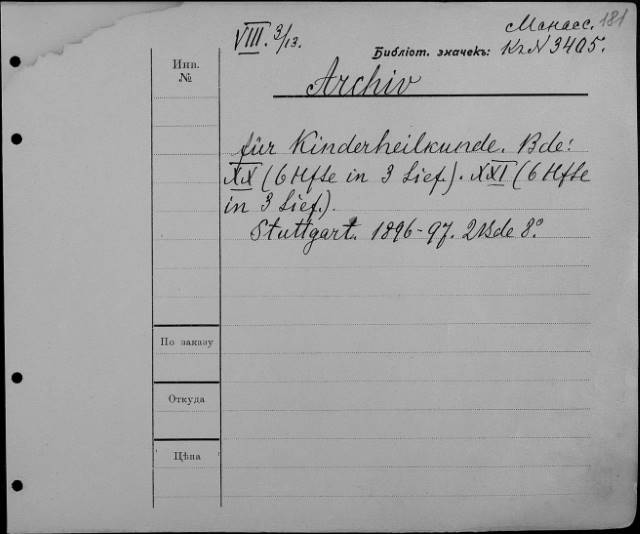 Манасс. 181
VIII. 3/13.
Библіот. значекъ: KzN 3405.
Инв.
№
Archiv
für Kinderheilkunde. Bde:
XX (6 Hfte in 3 Lief.). XXI (6 Hfte
in 3 Lief.).
Stuttgart. 1896-97. 2 Bde 8°
По заказу
Откуда
Цѣна